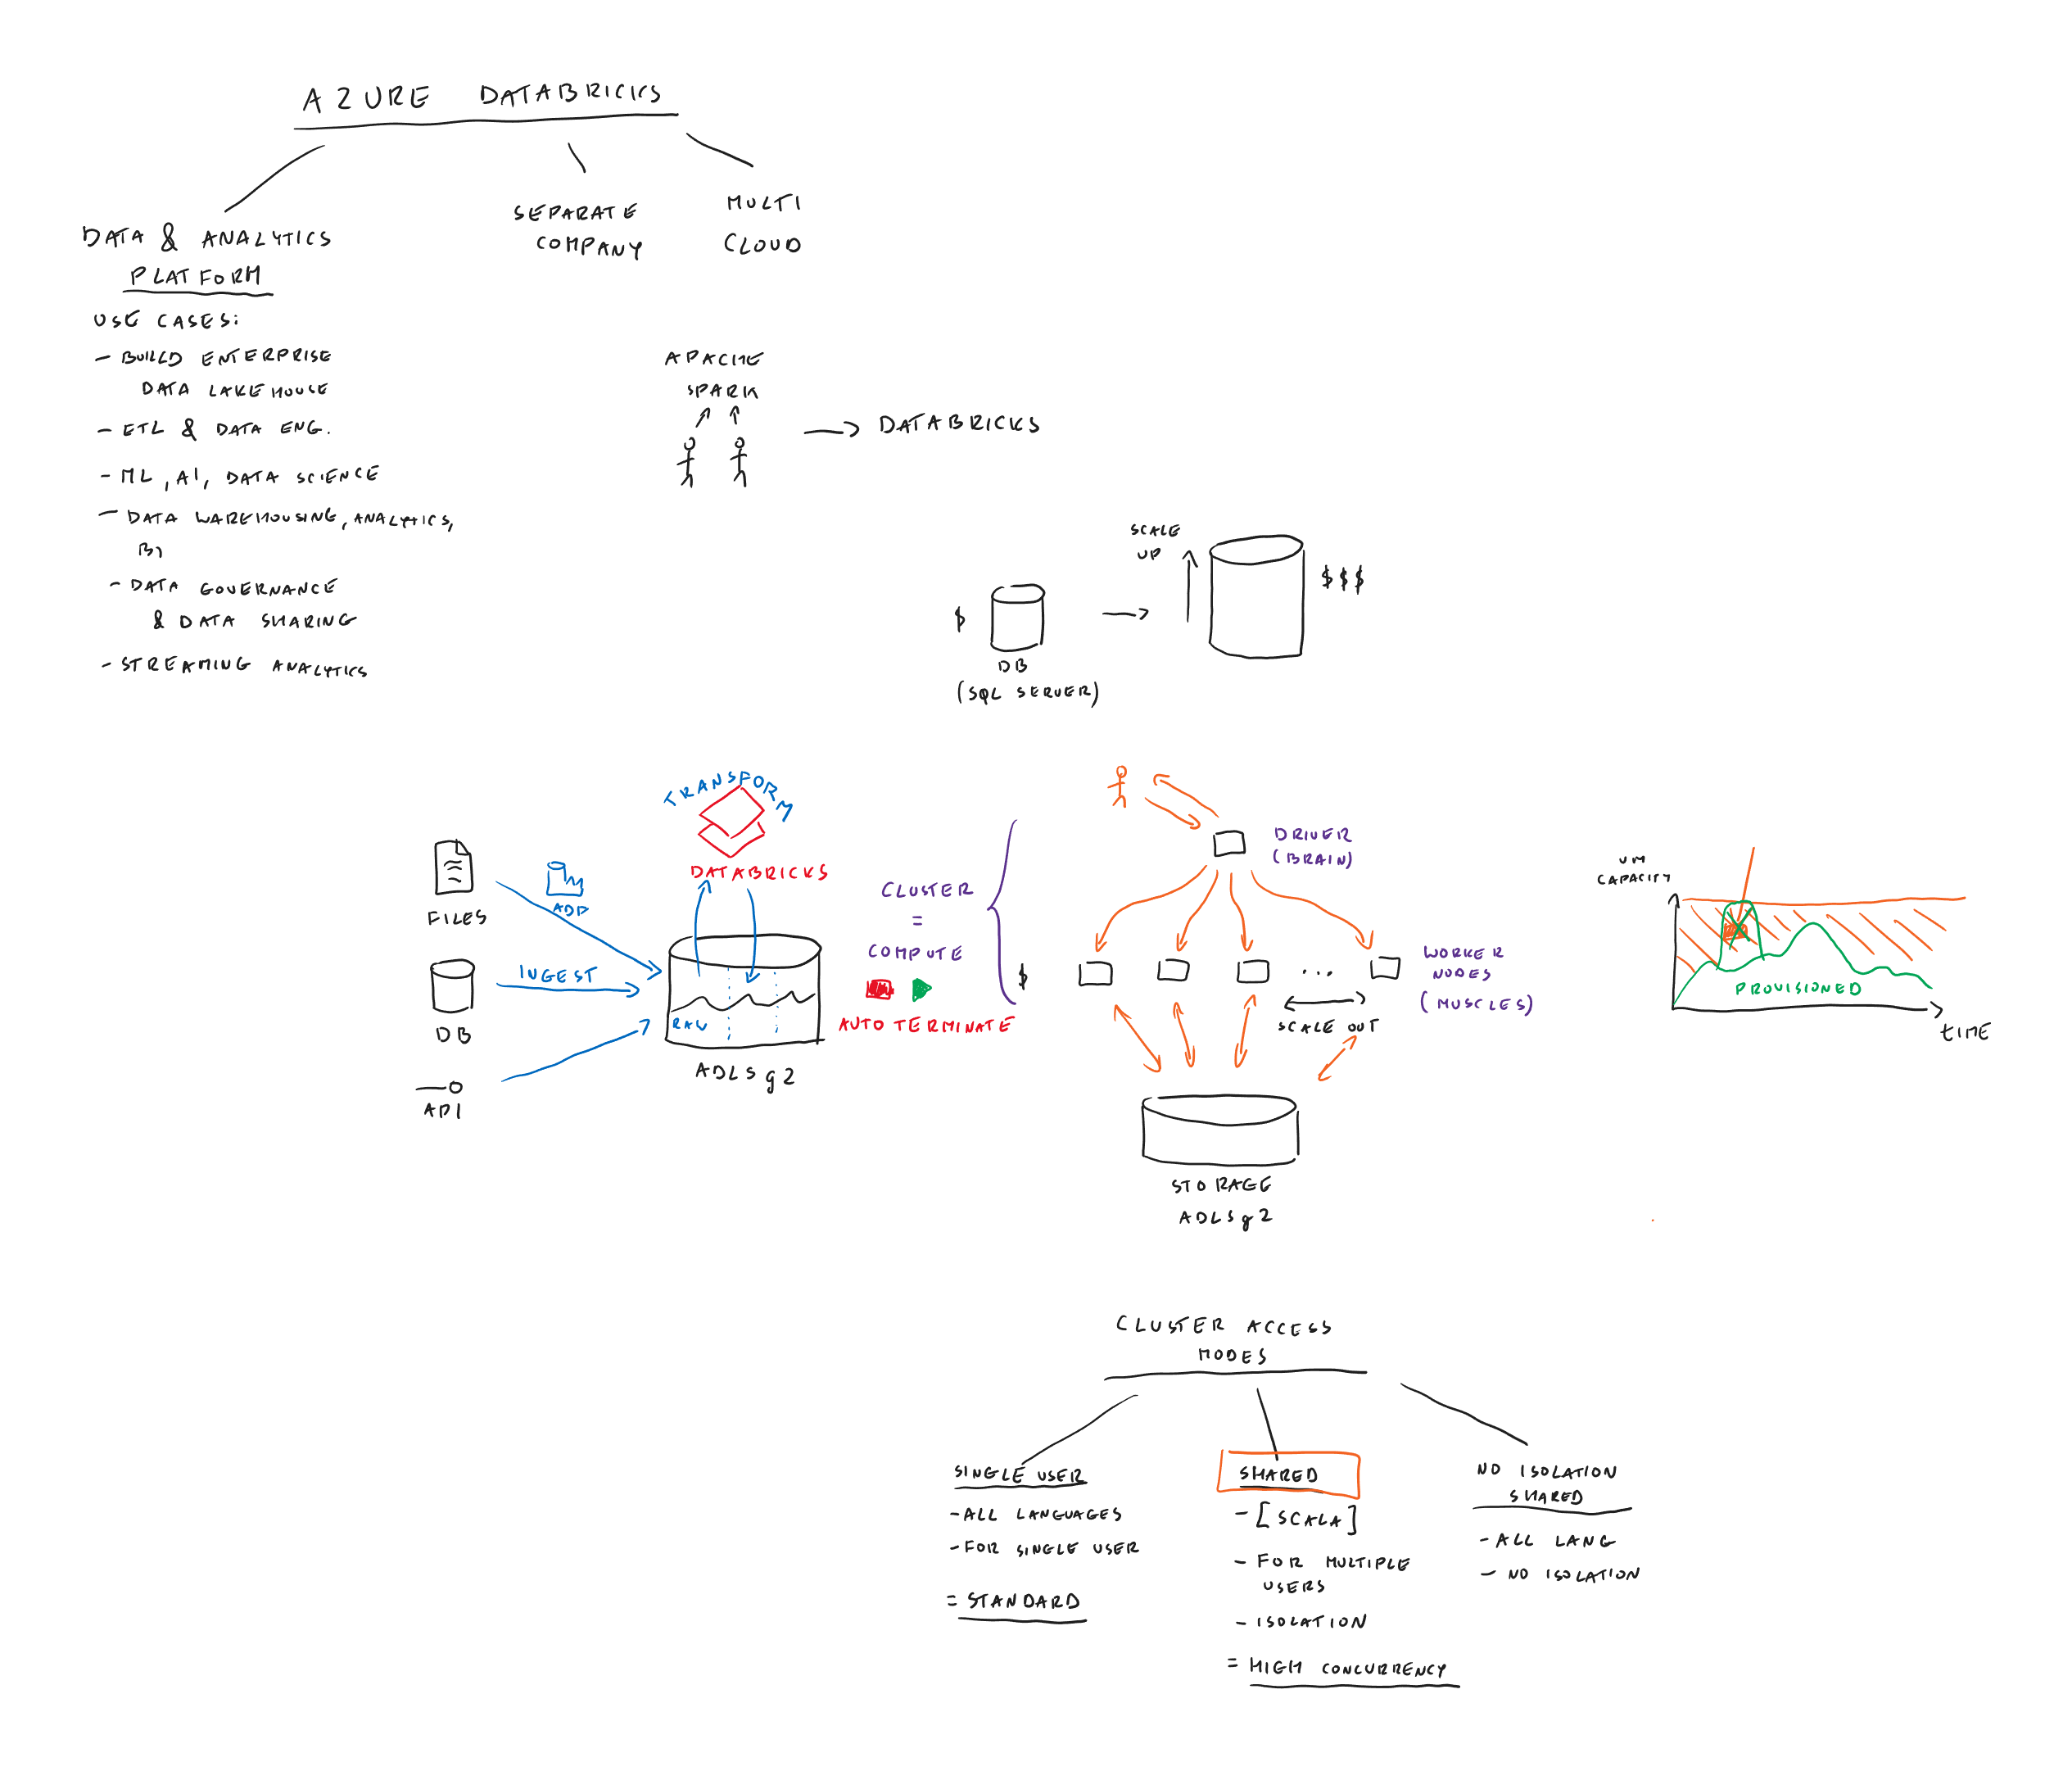 AZURE DATABRICKS
DATA & ANALYTICS
PLATFORM
SEPARATE
COMPANY
MULTI
CLOUD
USE CASES:
- BUILD ENTERPRISE
DATA LAKEHOUSE
- ETL & DATA ENG.
- ML, AI, DATA SCIENCE
- DATA WAREHOUSING, ANALYTICS,
BI
- DATA GOVERNANCE
& DATA SHARING
- STREAMING ANALYTICS
APACHE
SPARK
DATABRICKS
SCALE
UP
$
$$$
DB
(SQL SERVER)
TRANSFORM
DATABRICKS
FILES
ADF
INGEST
DB
API
RAW
ADLS g2
CLUSTER
=
COMPUTE
AUTO TERMINATE
$
DRIVER
(BRAIN)
...
WORKER
NODES
(MUSCLES)
SCALE OUT
STORAGE
ADLS g2
VM
CAPACITY
PROVISIONED
TIME
CLUSTER ACCESS
MODES
SINGLE USER
- ALL LANGUAGES
- FOR SINGLE USER
= STANDARD
SHARED
- [SCALA]
- FOR MULTIPLE
USERS
- ISOLATION
= HIGH CONCURRENCY
NO ISOLATION
SHARED
- ALL LANG
- NO ISOLATION